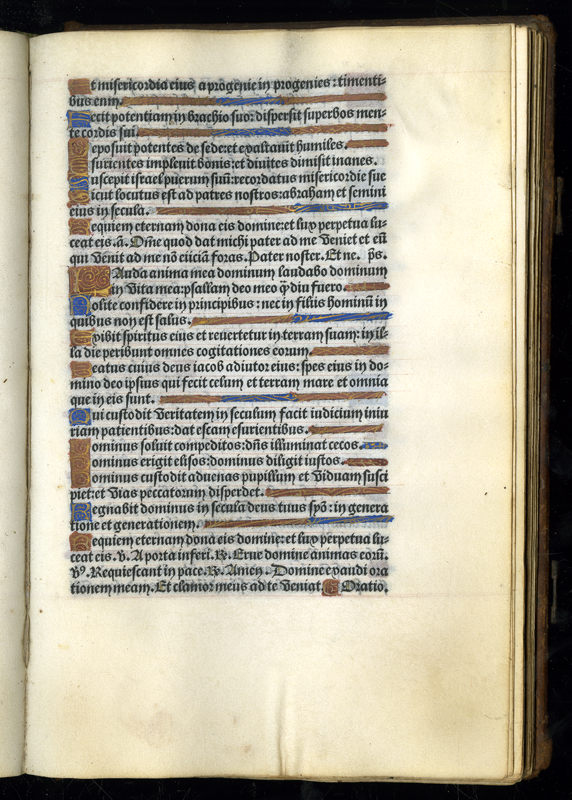 Et misericordia eius a progenie in progenies: timenti-
bus eum.
Fecit potentiam in brachio suo: dispersit superbos men-
te cordis sui.
Deposuit potentes de sede: et exaltauit humiles.
Esurientes impleuit bonis: et diuites dimisit inanes.
Suscepit israel puerum suũ: recordatus misericordie sue
Sicut locutus est ad patres nostros: abraham et semini
eius in secula.
Requiem eternam dona eis domine: et lux perpetua lu-
ceat eis. ã. Om̃e quod dat michi pater ad me veniet et eũ
qui venit ad me nõ eiiciã foras. Pater noster. Et ne. p̃s.
Lauda anima mea dominum laudabo dominum
in vita mea: psallam deo meo q̃diu fuero.
Nolite confidere in principibus: nec in filiis hominũ in
quibus non est salus.
Exibit spiritus eius et reuertetur in terram suam: in il-
la die peribunt omnes cogitationes eorum.
Beatus cuius deus iacob adiutor eius: spes eius in do-
mino deo ipsius qui fecit celum et terram mare et omnia
que in eis sunt.
Qui custodit veritatem in seculum facit iudicium iniu
riam patientibus: dat escam esurientibus.
Dominus soluit compeditos: dñs illuminat cecos.
Dominus erigit elisos: dominus diligit iustos.
Dominus custodit aduenas pupillum et viduam susci
piet: et vias peccatorum disperdet.
Regnabit dominus in secula deus tuus syõ: in genera
tione et generationem.
Requiem eternam dona eis domine: et lux perpetua lu-
ceat eis. ℣. A porta inferi. ℟. Erue domine animas eorũ.
℣. Requiescant in pace. ℟. Amen. Domine exaudi ora
tionem meam. Et clamor meus ad te veniat. Oratio.